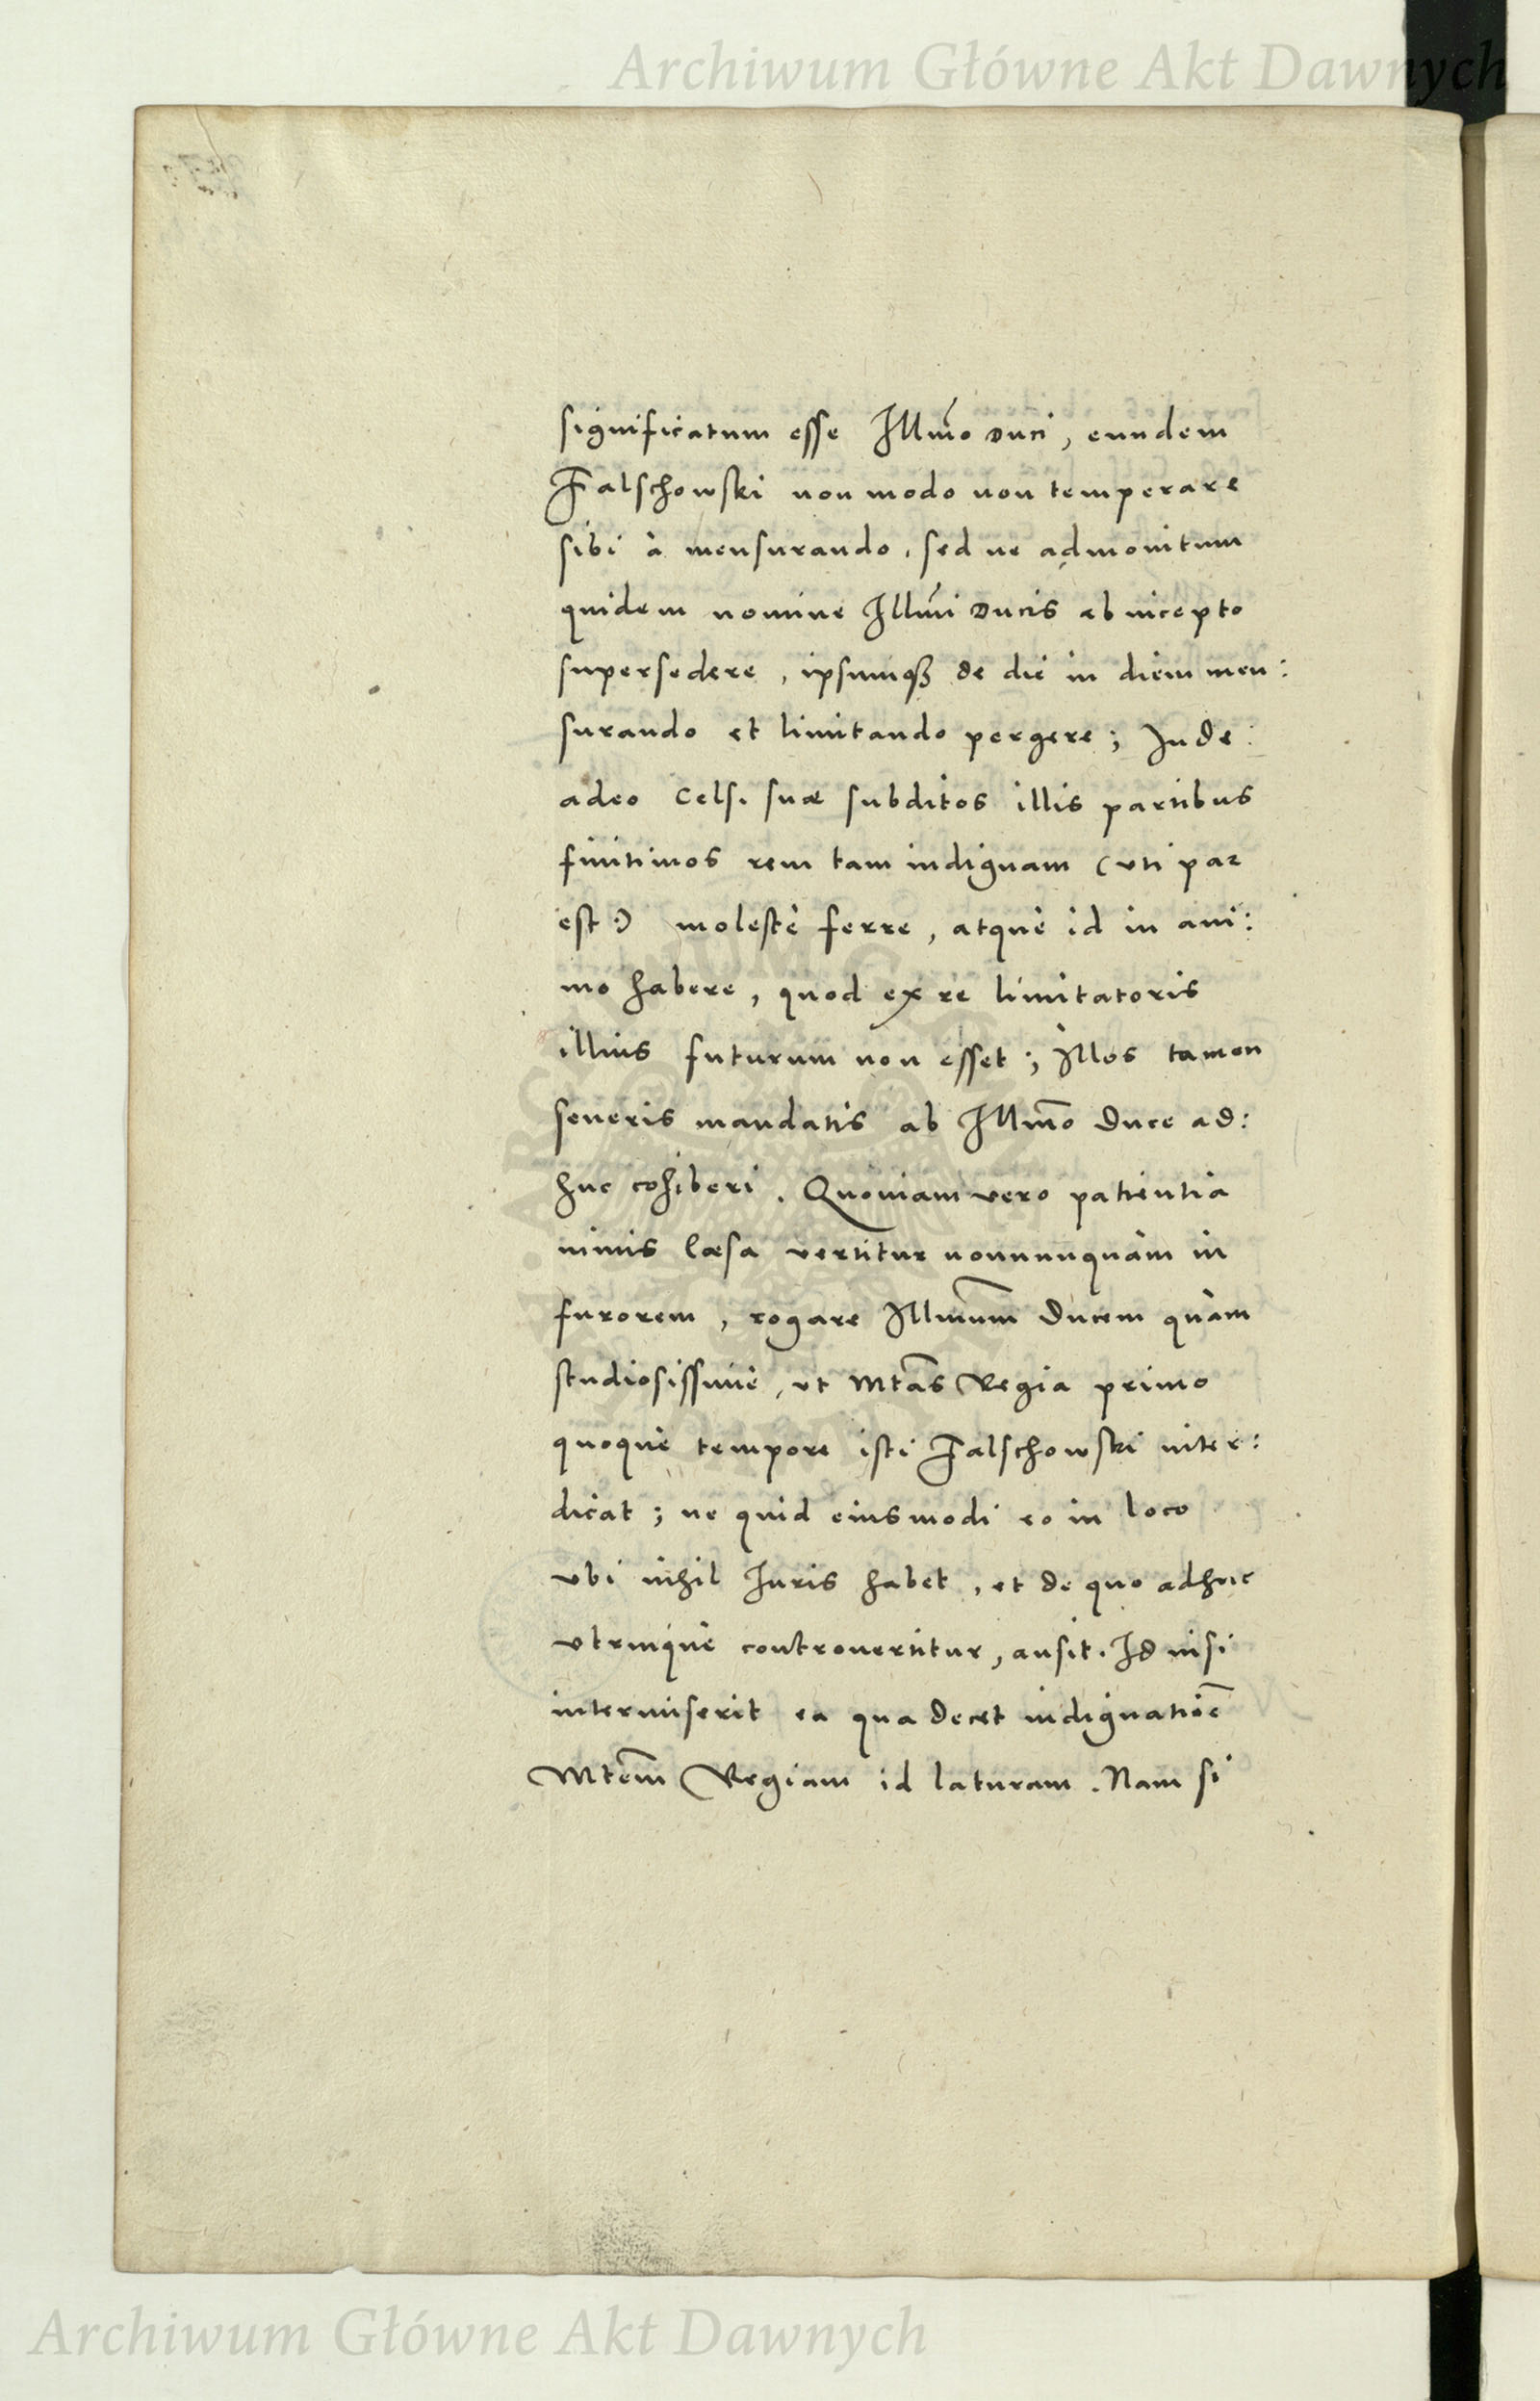 Archiwum Główne Akt Dawnych
significatum esse Illmo Duci, eundem
Falschowski non modo non temperare
sibi à mensurando, sed ne admonitum
quidem nomine Illmi Ducis ab incepto
supersedere, ipsumqȝ de die in diem men:
surando et limitando pergere; Inde
adeo Cels. suæ subditos illis partibus
finitimos rem tam indignam (uti par
est:) molestè ferre, atquè id in ani:
mo habere, quod ex re limitatoris
illius futurum non esset; Illos tamen
seueris mandatis ab Illmo Duce ad:
huc cohiberi. Quoniam vero patientia
nimis læsa vertitur nonnunquàm in
furorem, rogare Illmum Ducem quàm
studiosissimè, ut Mtas Regia primo
quoquè tempore isti Falschowski inter:
dicat; ne quid eiusmodi eo in loco
vbi nihil Iuris habet, et de quo adhuc
vtrinquè controuertitur, ausit. Id nisi
intermiserit ea qua decet indignatioe
Mtem Regiam id laturam. Nam si
Archiwum Główne Akt Dawnych